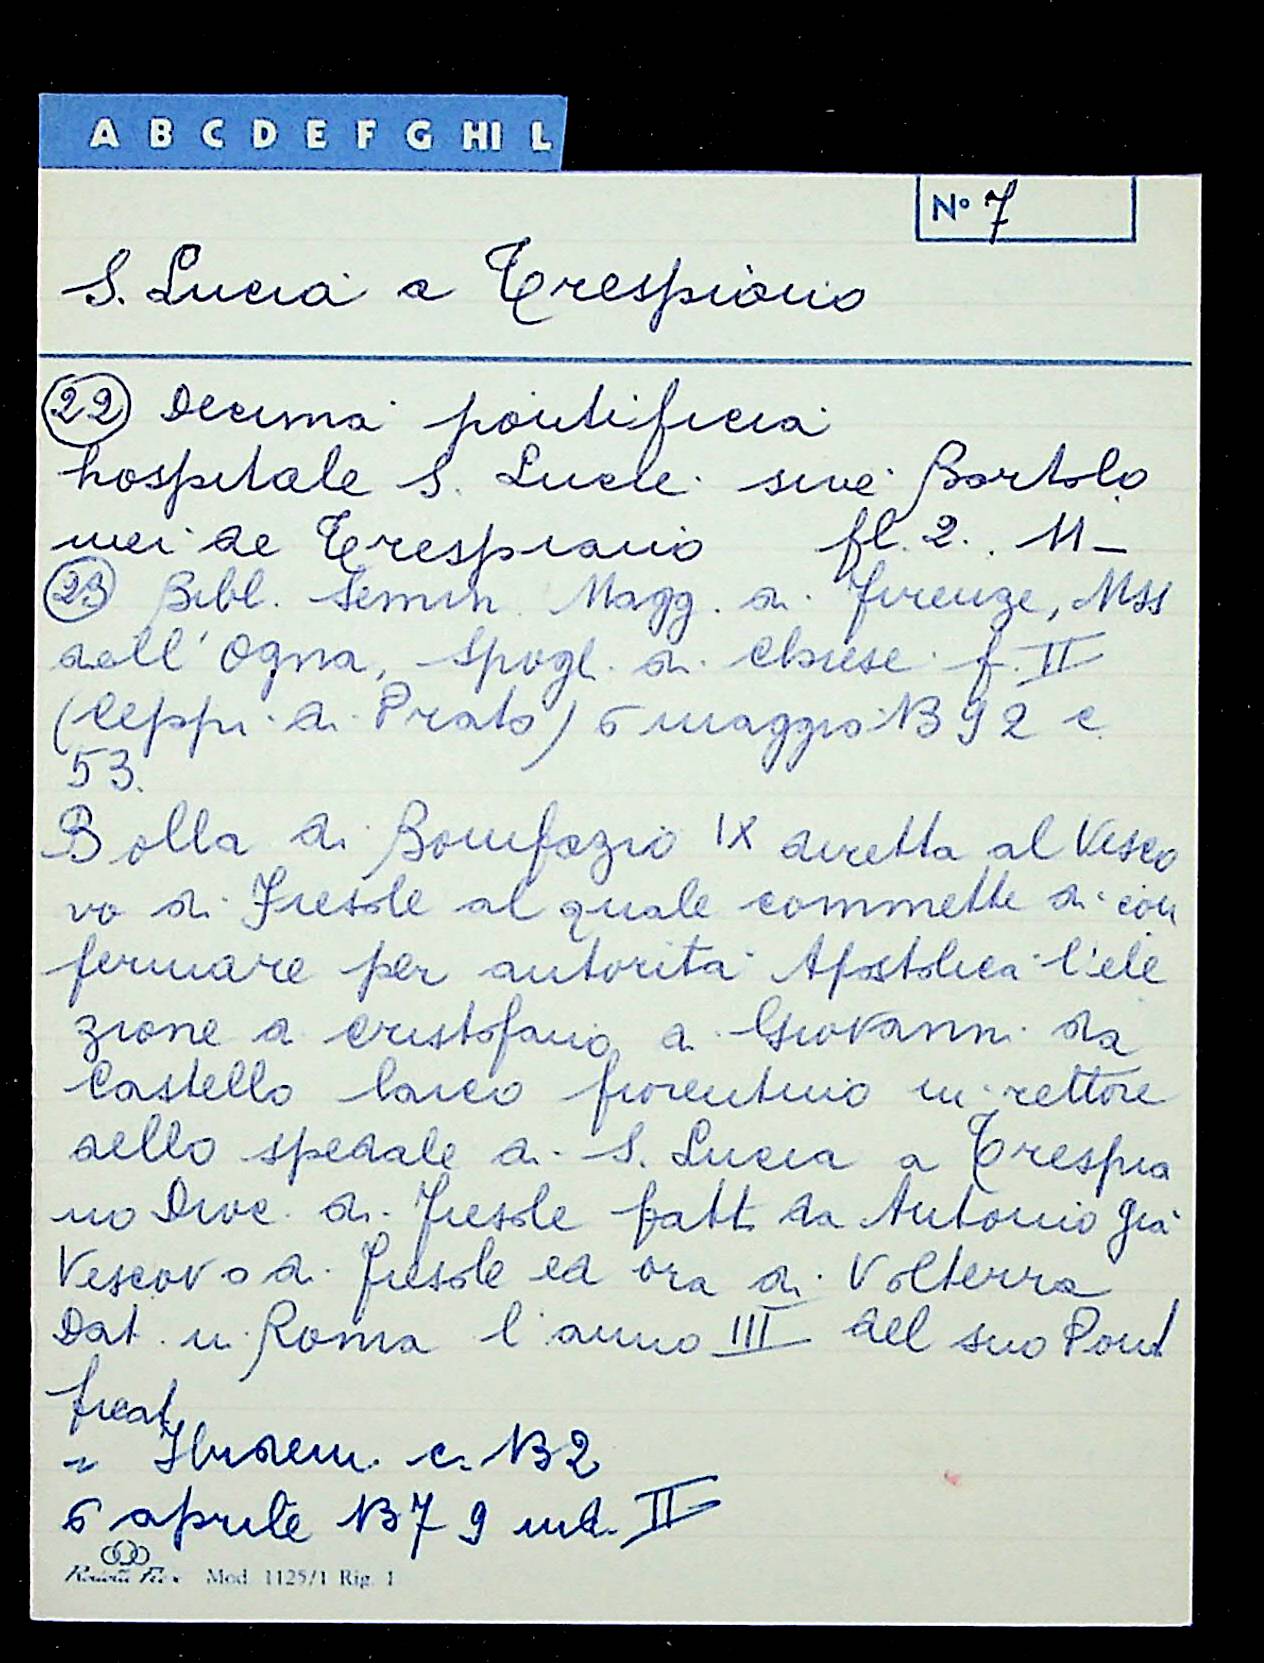 A B C D E F G HI L
N° 7
S. Lucia a Trespiano
22 Decima pontificia
hospitale S. Lucie sive Bartolo
mei de Trespiano fl. 2. 11 -
23 Bibl. Semin. Magg. di Firenze, Mss
dell'Ogna, Spogl. di Chiese f. II
(Ceppi di Prato) 6 maggio 1392 c.
53.
Bolla di Bonifazio IX diretta al Vesco
vo di Fiesole al quale commette di con
fermare per autorita Apostolica l'ele
zione a Cristofano di Giovanni da
Castello laico fiorentino in rettore
dello spedale di S. Lucia a Trespia
no Dioc. di Fiesole fatt. da Antonio già
Vescovo di Fiesole ed ora di Volterra
Dat. in Roma l'anno III del suo Pont
ficat
" Ibidem. c. 132
6 aprile 1379 ind. II
Mod. 1125/1 Rig. 1